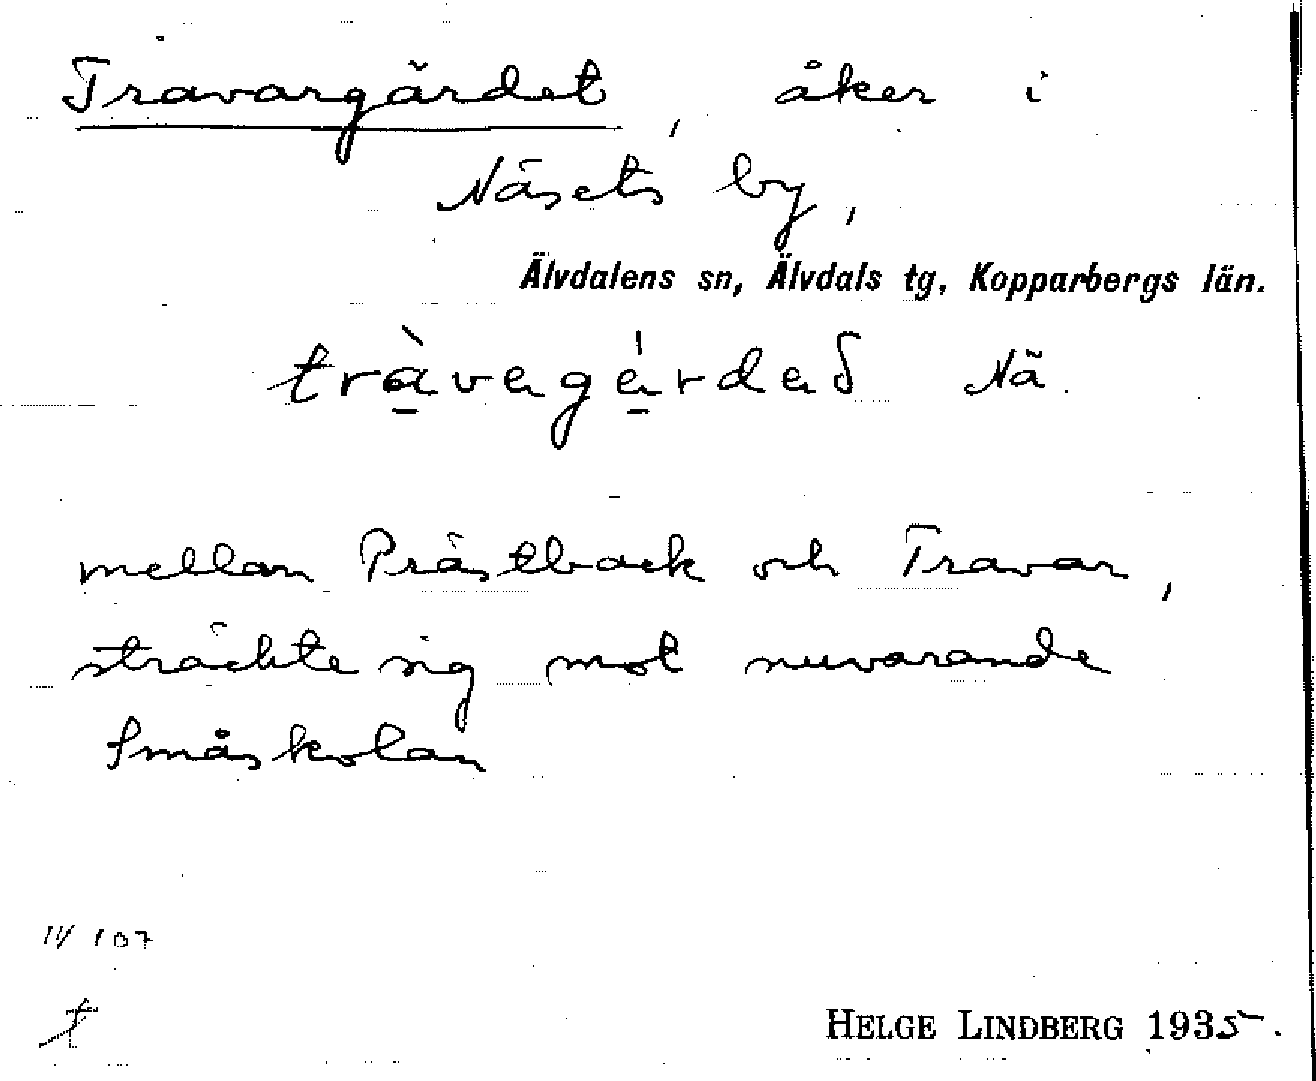 Travargärdet, åker i
Näsets by,
Älvdalens sn, Älvdals tg, Kopparbergs län.
Nä.
mellan Prästback och Travar,
sträckte sig mot nuvarande
Småskolan
IV 107
t
HELGE LINDBERG 1935.